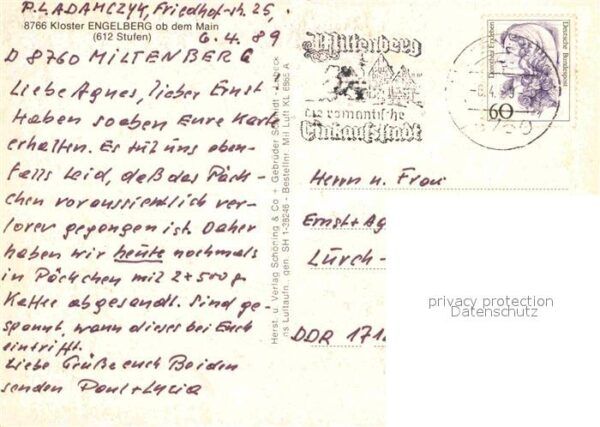 P. ADAMCZYK, Friedhof-str. 25,
8766 Kloster ENGELBERG ob dem Main
(612 Stufen)
6.4.89
D 8760 MILTENBERG
Liebe Agnes, lieber Ernst
Haben soeben Eure Karte
erhalten. Es tut uns eben-
falls Leid, daß das Päck-
chen voraussichtlich ver-
loren gegangen ist. Daher
haben wir heute nochmals
in Päckchen mit 2x500g
Kaffee abgesandt. Sind ge-
spannt, wann dieses bei Euch
eintrifft.
Liebe Grüße euch Beiden
senden Paul + Lucia
Herst. u. Verlag Schöning & Co + Gebrüder Schmidt - Lübeck
ns Luftaufn. gen. SH 1-38246 - Bestellnr. Mil Luft KL 6965 A
Miltenberg
die romantische
Einkaufsstadt
Dorothea Erxleben
Deutsche Bundespost
60
8760
Herrn u. Frau
Ernst + Ag
Lürch-
DDR 171
privacy protection
Datenschutz